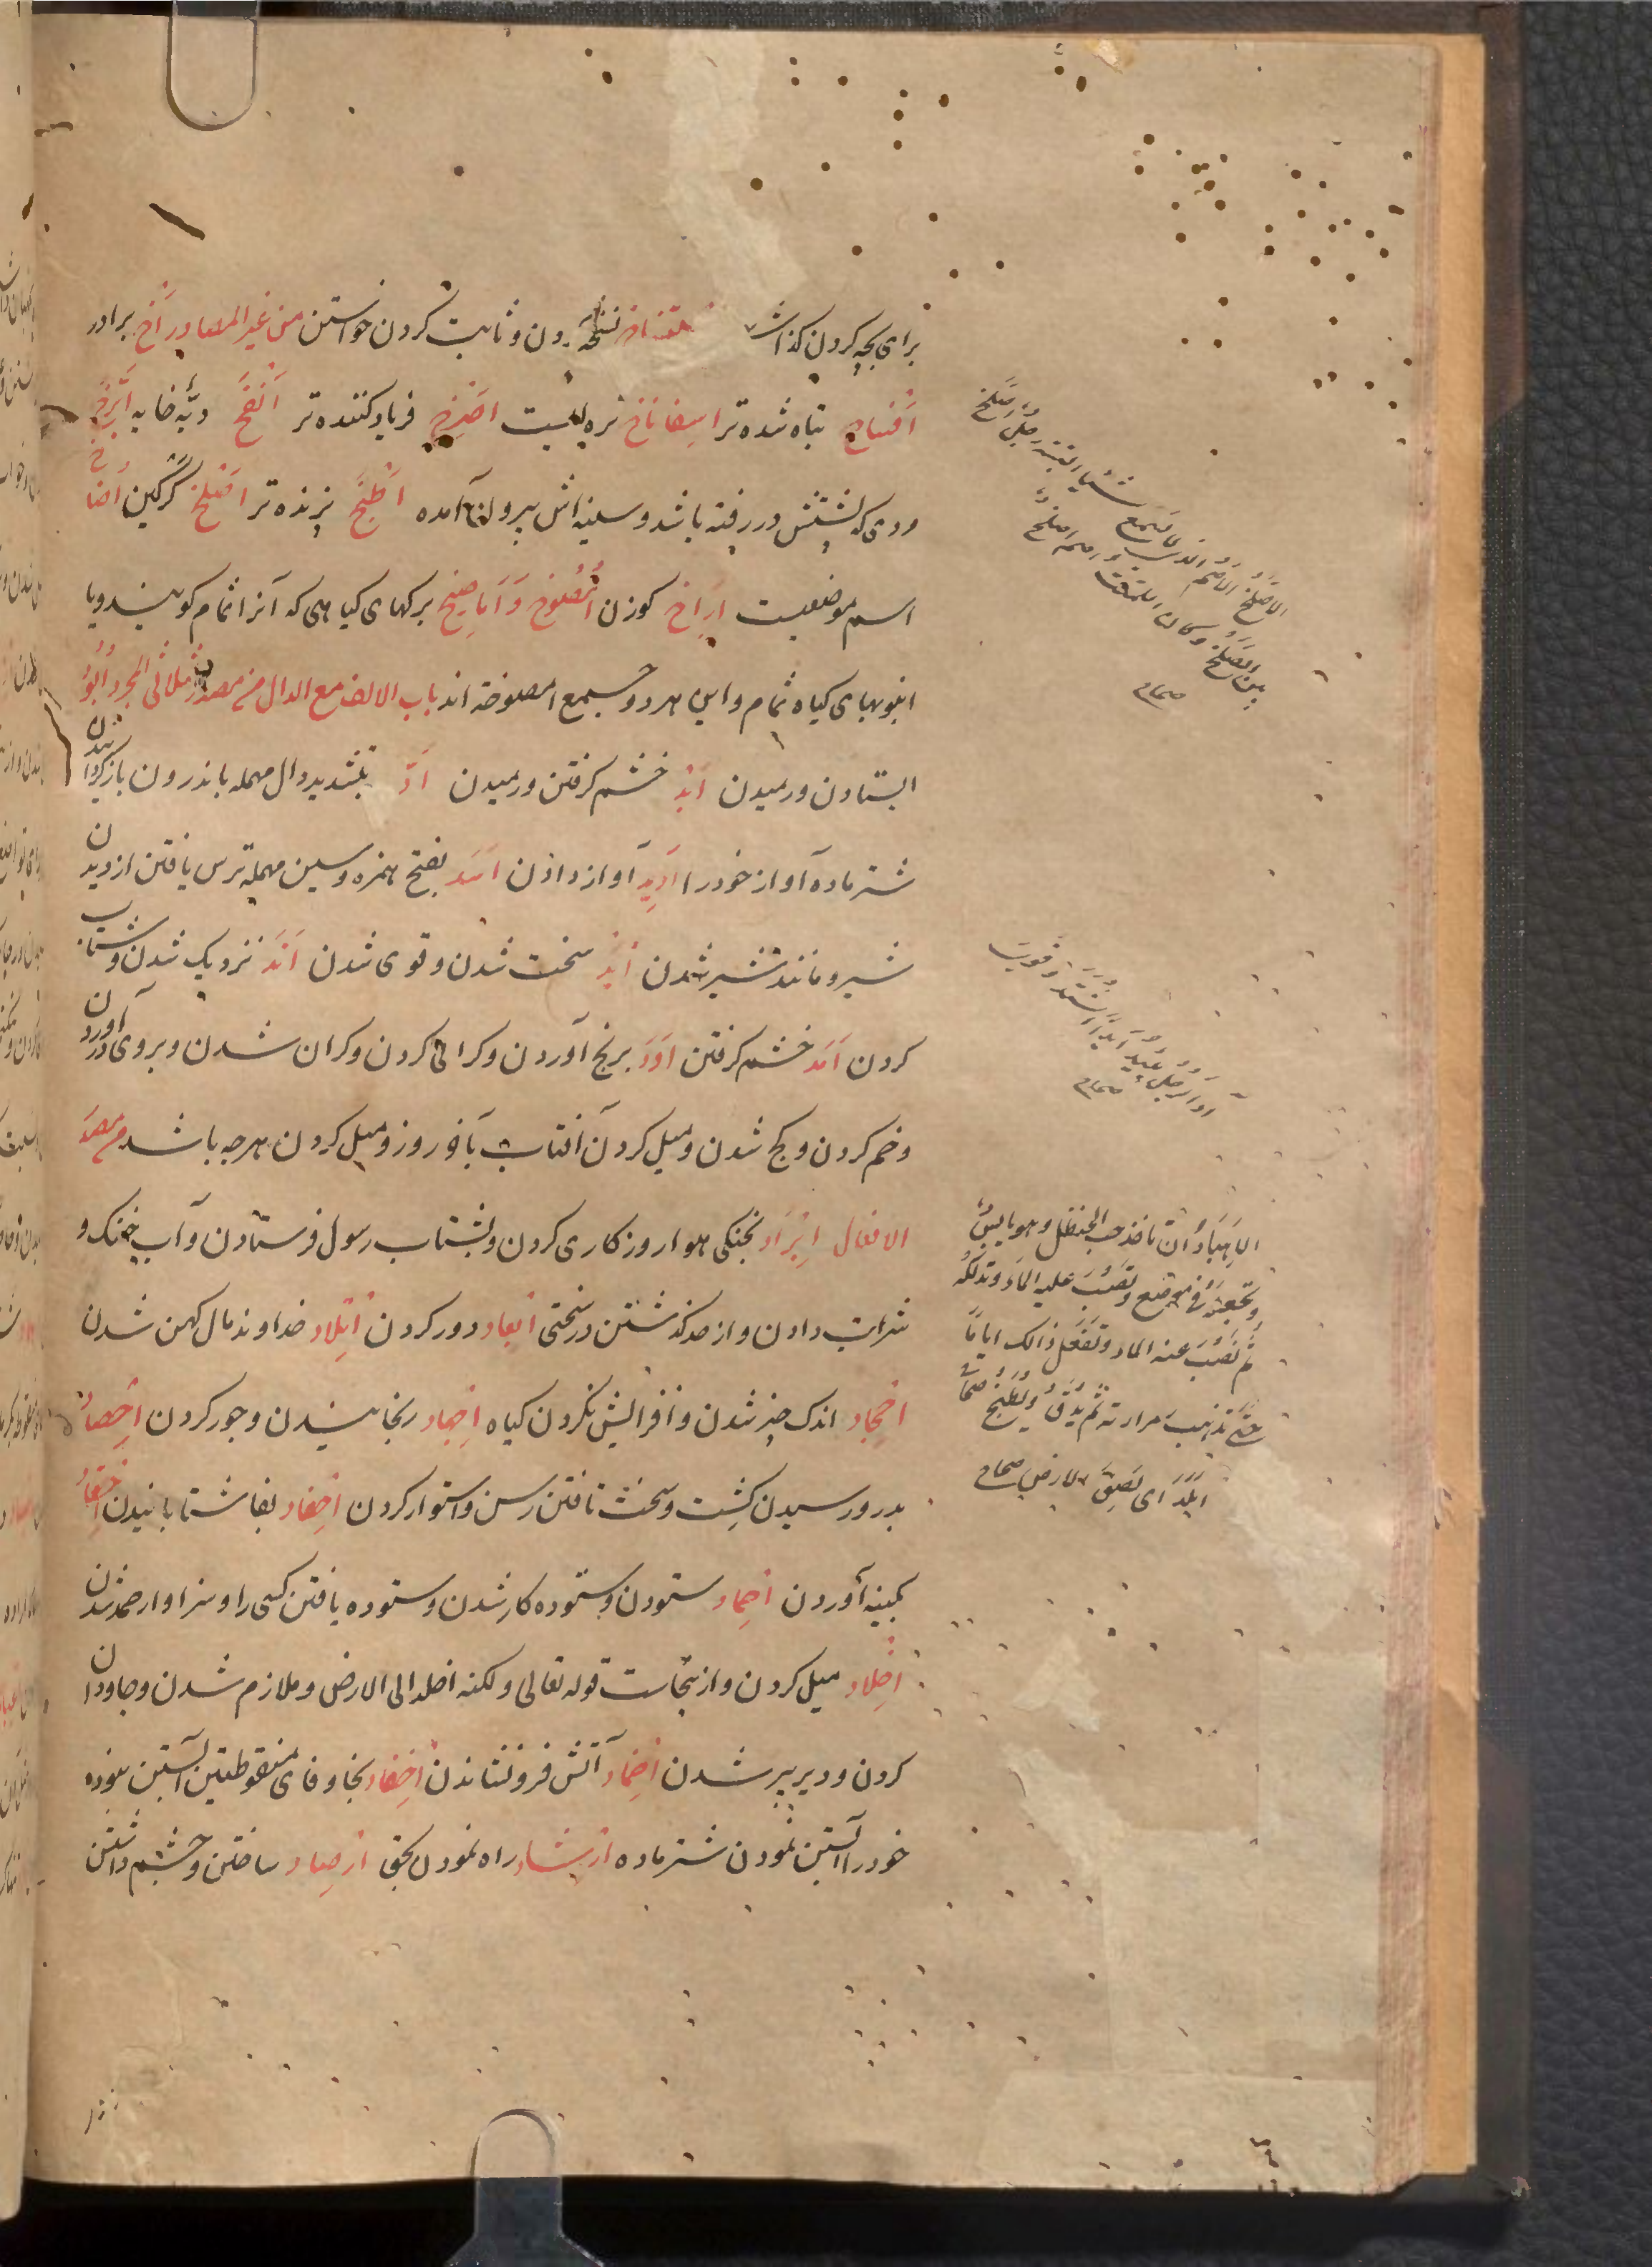 برای بچه کردن گذاشتن نسخه کردن و ثابت کردن خواستن من غیر المصادر اخ برادر
تباه شده تر اسفاناخ تره ایست اصرخ فریاد کننده تر انفخ دبه خایه ابزخ
مردی که پشتش در رفته باشد و سینه اش بیرون آمده اطبخ پزنده تر اصلخ گرگین اضاخ
اسم موضعیست اراخ گوزن امصوخ و اماصیخ برکهای کیاهی که آنرا ثمام کویند و یا
انبوبهای کیاه ثمام و این هر دو جمع امصوخه اند باب الالف مع الدال من مصدر ثلاثی المجرد ابود
ایستادن و رمیدن ابد خشم کرفتن و رمیدن اد بتشدید دال مهمله باندرون باز کردانیدن
شتر ماده آواز خود را ادید آواز دادن اسد بفتح همزه و سین مهمله ترس یافتن از دیدن
شیر و مانند شیر شدن اید سخت شدن و قوی شدن افد نزدیک شدن و شتاب
کردن امد خشم کرفتن اود برنج آوردن و کرانی کردن و کران شدن و بروی در آوردن
و خم کردن و کج شدن و میل کردن آفتاب بآخر روز و میل کردن هر چه باشد من مصدر
الافعال ابراد بخنکی هوا روز کاری کردن و بشتاب رسول فرستادن و آب خنک و
شراب دادن و از حد کذشتن در سختی ابعاد دور کردن اتلاد خداوند مال کهن شدن
اجحاد اندک خیر شدن و افزایش نکردن کیاه اجهاد رنجانیدن و جور کردن احصاد
بدرو رسیدن کشت و سخت تافتن رسن و استوار کردن احفاد بفا شتابانیدن احقاد
بکینه آوردن احماد ستودن و ستوده کار شدن و ستوده یافتن کسی را و سزاوار حمد شدن
اخلاد میل کردن و ازینجاست قوله تعالی ولکنه اخلد الی الارض و ملازم شدن و جاودان
کردن و دیر پیر شدن اخماد آتش فرو نشاندن اخفاد بخا و فای منقوطتین آبستن نبوده
خود را آبستن نمودن شتر ماده ارشاد راه نمودن بحق ارصاد ساختن و چشم داشتن
الاصلخ الاصم الذی لا یسمع شیئا البتة رجل اصلخ
بین الصلخ
صحاح
آد الرجل یئید ایدا اشتد و قوی
صحاح
الاهباد ان تاخذ حب الحنظل و هو یابس
و تجعله فی موضع و تصب علیه الماء و تدلکه
ثم تصب عنه الماء و تفعل ذالک ایاما
حتی تذهب مرارته ثم یدق و یطبخ صحاح
ابلد ای لصق بالارض صحاح